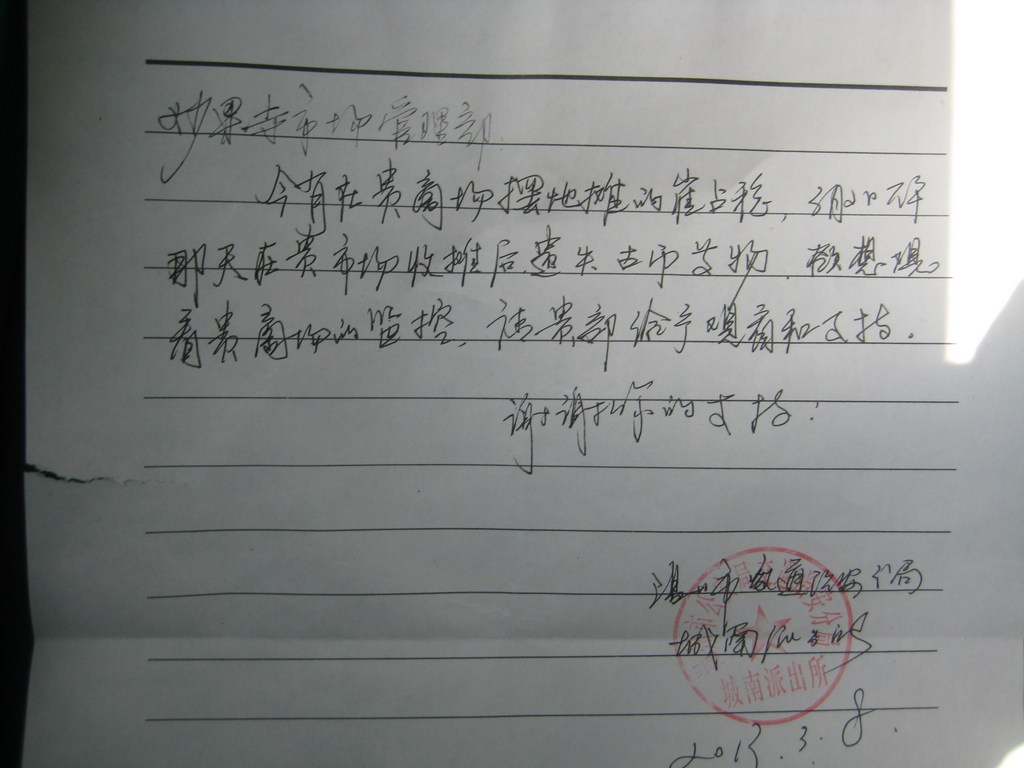 妙果寺市场管理部
今有在贵商场摆地摊的崔占稳，3月
那天在贵市场收摊后遗失古币等物．欲想
看贵商场的监控，请贵部给予观看和支持．
谢谢你的支持！
温州市交通治安分局
城南派出所
城南派出所
2013.3.8.